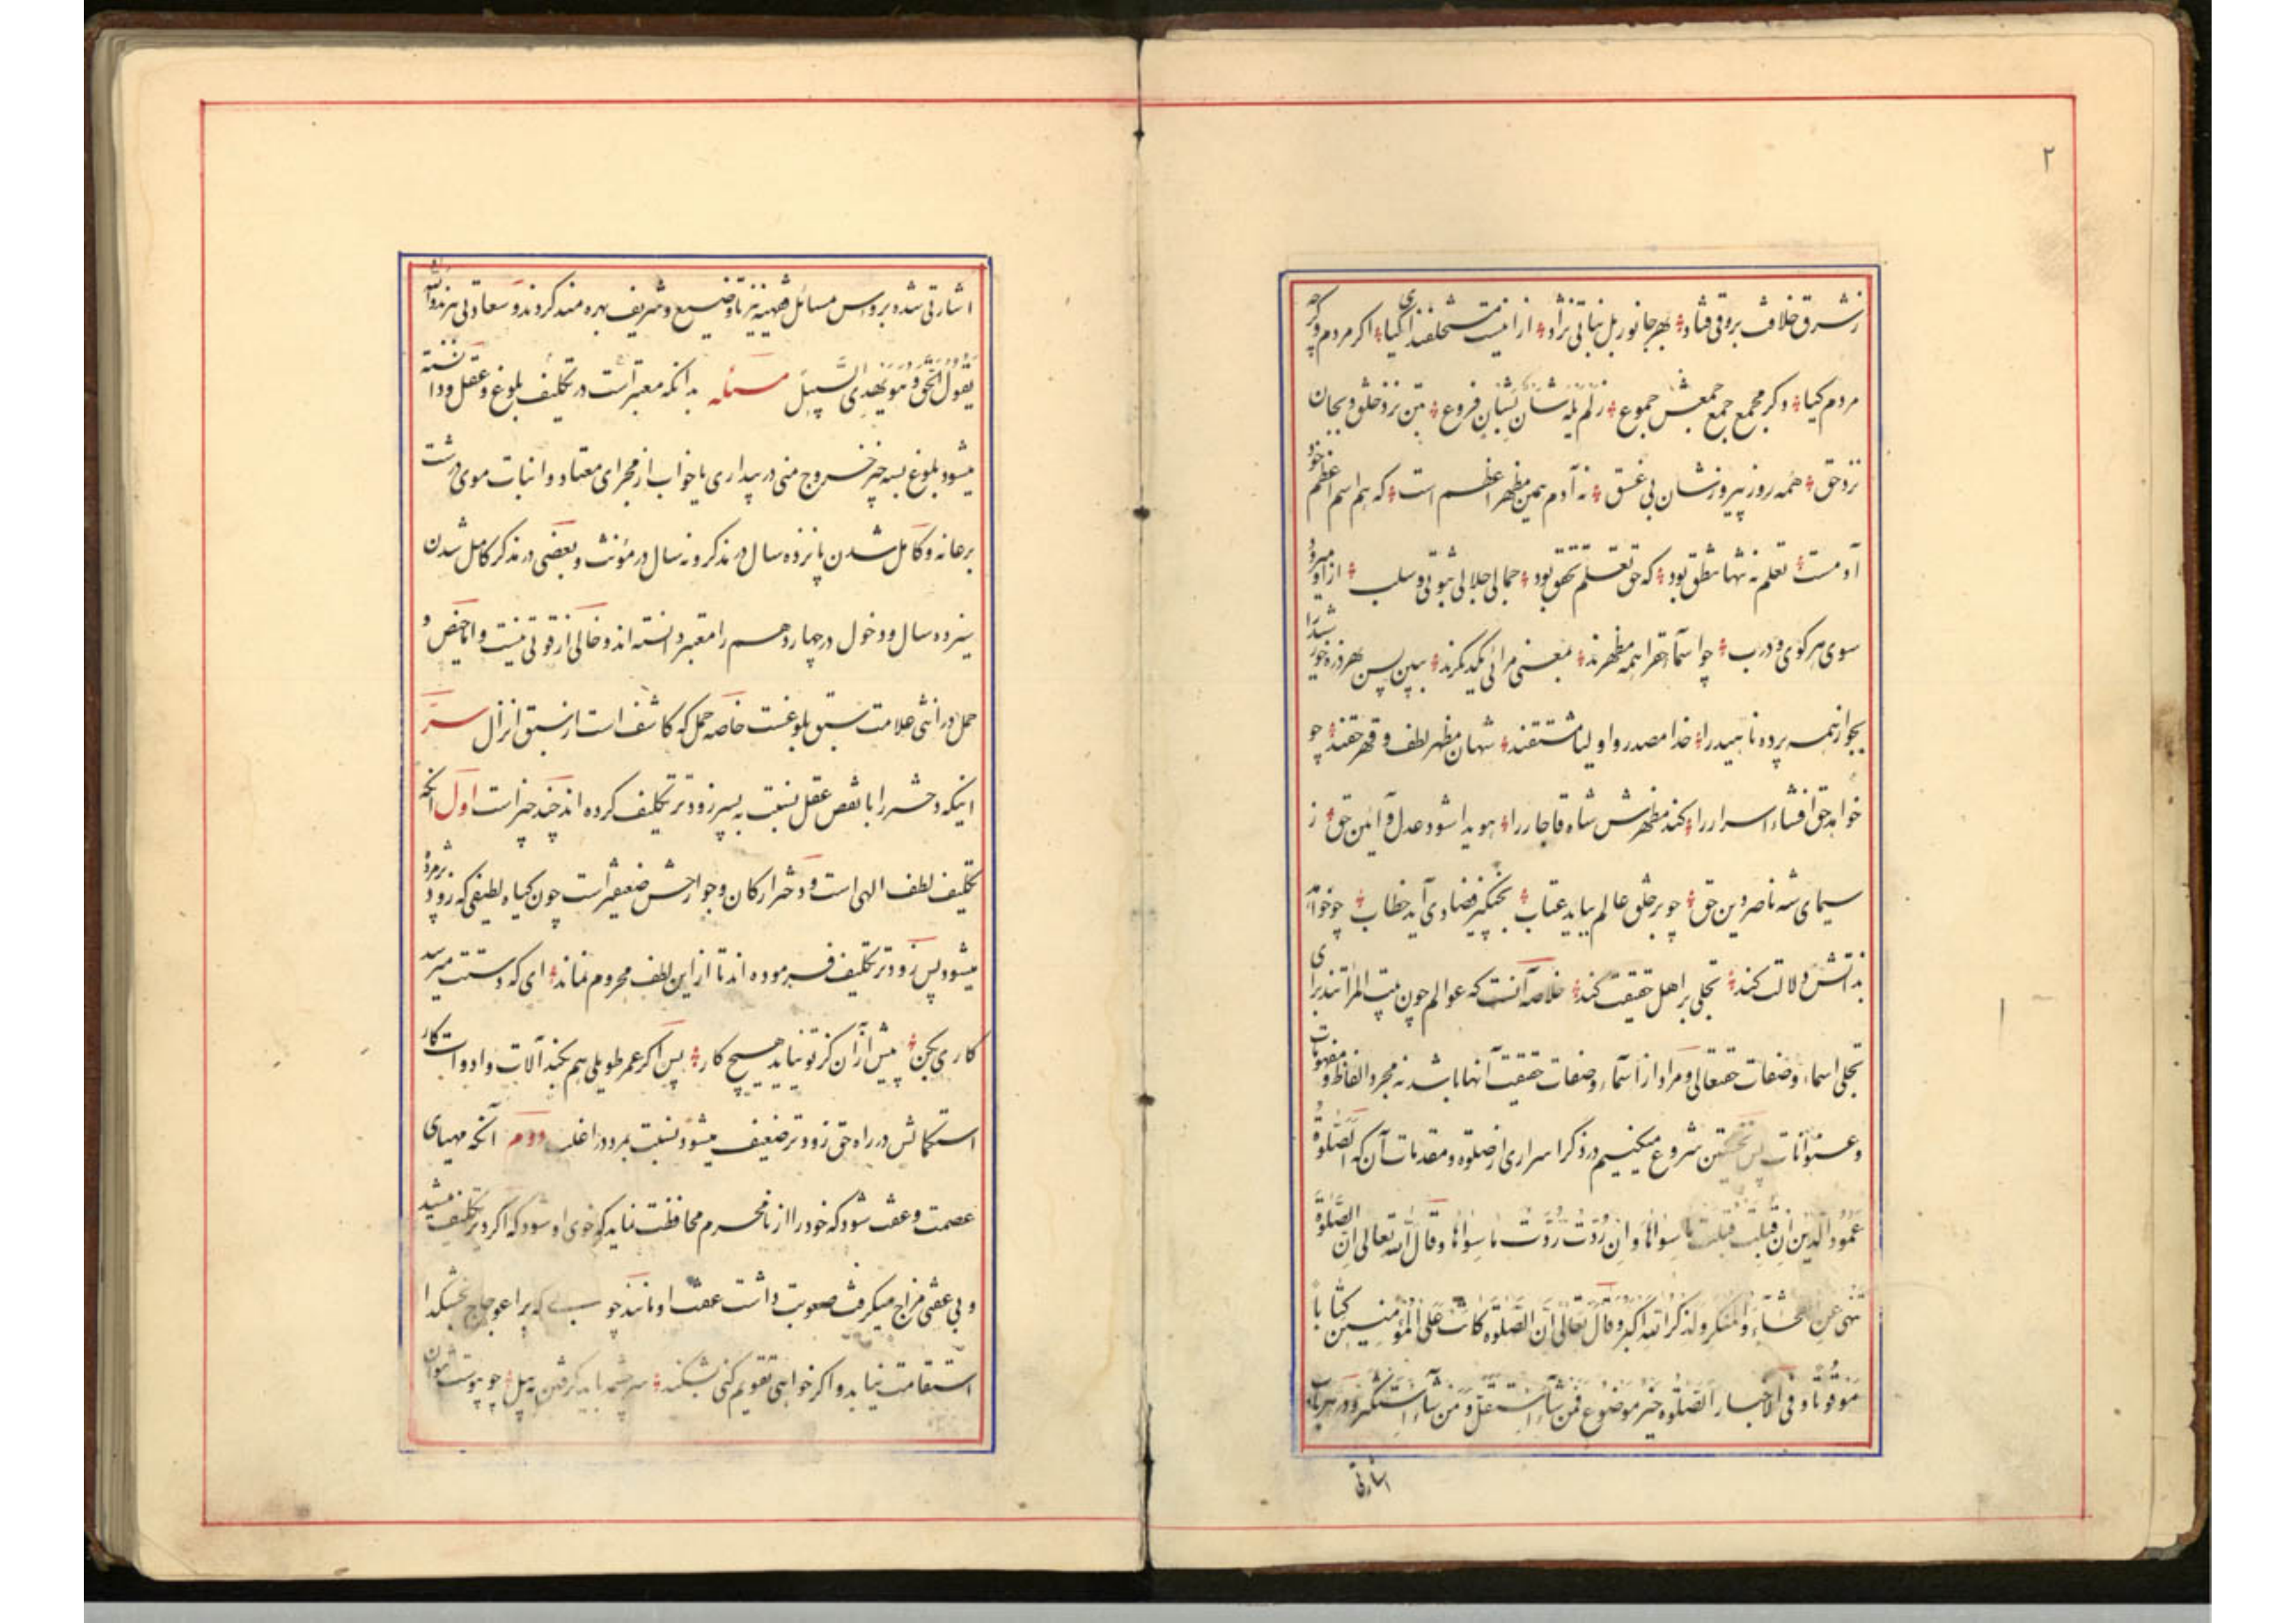 ٢
ز شرق خلافت بروقی فتاد ؞ بهر جانور بل نباتی نژاد ؞ از اینست مستخلفند کیا ؞ اکر مردم و کرچه
مردم کیا ؞ و کر مجمع جمع جمعش جموع ؞ بتن نزد خلق و بجان
نزد حق ؞ همه روز پیروزشان بی غسق ؞ نه آدم همین مظهر اعظم است ؞ که هم اسم اعظم خود
آدمست ؞ تعلم نه تنها نطق بود ؞ که حق تعلم تحقق بود ؞ جمالی جلالی ثبوتی و سلب ؞ ازاو میرود
سوی هر کوی و درب ؞ چو اسماء حقرا همه مظهرند ؞ بمعنی مرائی یکدیکرند ؞ ببین پس بهر ذره خورشید را
بجو از همه پرده ناهید را ؞ خدا مصدر و اولیا مشتقند ؞ شهان مظهر لطف و قهر حقند ؞ چو
خواهد حق افشاء اسرار را ؞ کند مظهرش شاه قاجار را ؞ هویدا شود عدل و آئین حق ؞ ز
سیمای شه ناصر دین حق ؞ چو بر خلق عالم بیاید عتاب ؞ بچنکیز فضادی آید خطاب ؞ چو خواهد
بذاتش دلالت کند ؞ تجلی بر اهل حقیقت کند ؞ خلاصه آنست که عوالم چون بیت المرآتند برای
تجلی اسماء و صفات حقتعالی و مراد از اسماء و صفات حقیقت آنها باشد نه مجرد الفاظ و مفهومات
و عنوانات پس نخستین شروع میکنیم در ذکر اسراری از صلوة و مقدمات آن که الصلوة
عمود الدین ان قبلت قبلت ما سواها و ان ردت ردت ما سواها و قال الله تعالی ان الصلوة
تنهی عن الفحشاء و المنکر و لذکر الله اکبر و قال تعالی ان الصلوة کانت علی المؤمنین کتابا
موقوتا و فی الاخبار الصلوة خیر موضوع فمن شاء استقل و من شاء استکثر و در هر باب
اشارتی
اشارتی شده بروس مسائل فقهیه نیز تا وضیع و شریف بهره مند کردند و سعادتی برند و الله
یقول الحق و هو یهدی السبیل مسئله بدانکه معتبر است در تکلیف بلوغ و عقل و دانسته
میشود بلوغ بسه چیز خروج منی در بیداری یا خواب از مجرای معتاد و انبات موی درشت
بر عانه و کامل شدن پانزده سال در مذکر و نه سال در مؤنث و بعضی در مذکر کامل شدن
سیزده سال و دخول در چهاردهم را معتبر دانسته اند و خالی از قوتی نیست و اما حیض و
حمل در انثی علامت سبق بلوغست خاصه حمل که کاشف است از سبق انزال سر
اینکه دختر را با نقص عقل نسبت به پسر زودتر تکلیف کرده اند چند چیز است اول آنکه
تکلیف لطف الهی است و دختر ارکان و جوارحش ضعیفتر است چون کیاه لطیفی که زود پژمرده
میشود پس زودتر تکلیف فرموده اند تا از این لطف محروم نماند ؞ ای که دستت میرسد
کاری بکن ؞ پیش از آن کز تو نیاید هیچ کار ؞ پس اکر عمر طویلی هم بکند آلات و ادوات کار
استکمالش در راه حق زودتر ضعیف میشود نسبت بمرد در اغلب دوم آنکه مهیای
عصمت و عفت شود که خود را از نامحرم محافظت نماید که خوی او شود که اکر دیر تکلیف میشد
و بی عفتی مزاج میکرفت صعوبت داشت عفت او مانند چوبی که بر اعوجاج بخشکد
استقامت نیابد و اکر خواهی تقویم کنی بشکند ؞ سر چشمه باید کرفتن به بیل ؞ چو پر شد نتوان